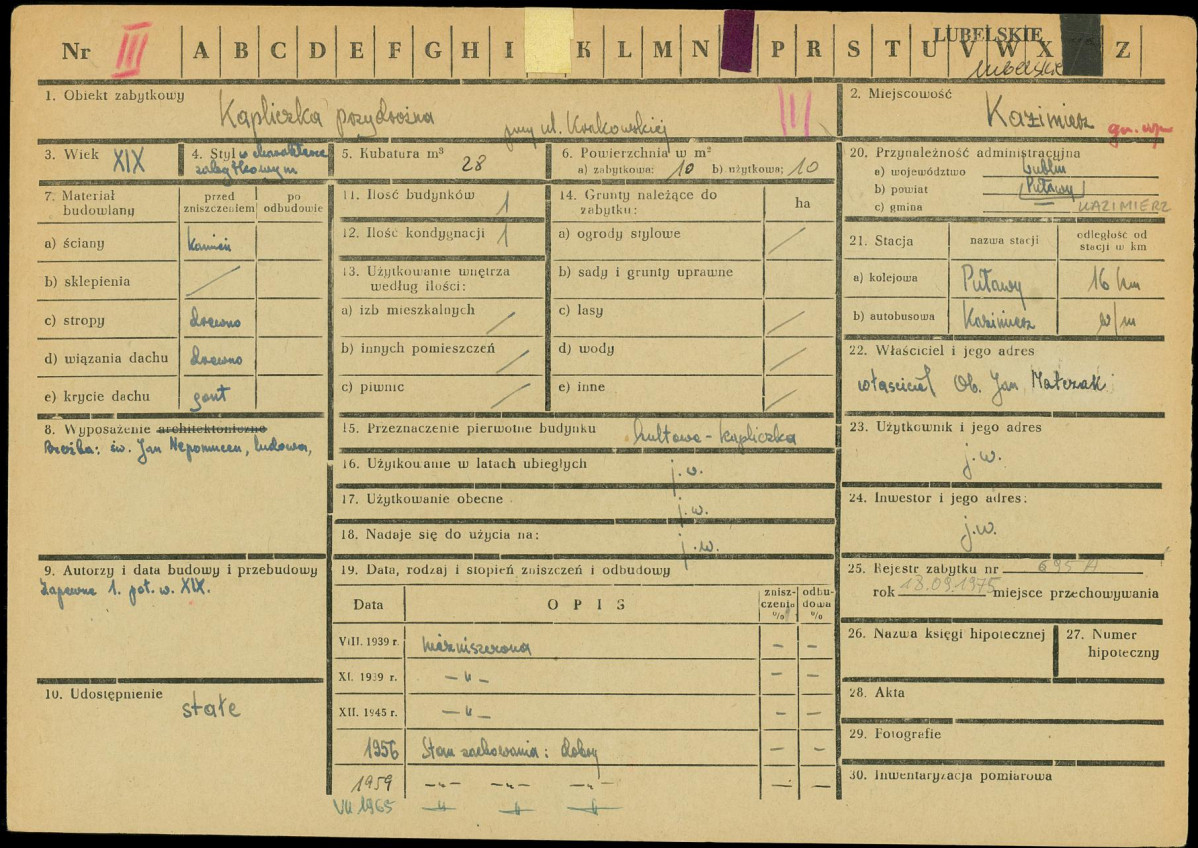 Nr III A B C D E F G H I K L M N P R S T U V W X Z
LUBELSKIE
lubelskie
1. Obiekt zabytkowy
Kapliczka przydrożna przy ul. Krakowskiej
III
2. Miejscowość
Kazimierz
3. Wiek XIX
4. Styl o charakterze
zabytkowym
5. Kubatura m³
28
6. Powierzchnia w m²
a) zabytkowa: 10 b) użytkowa: 10
7. Materiał
budowlany
przed
zniszczeniem
po
odbudowie
a) ściany kamień
b) sklepienia /
c) stropy drewno
d) wiązania dachu drewno
e) krycie dachu gont
8. Wyposażenie architektoniczne
Rzeźba: św. Jan Nepomucen, ludowa,
9. Autorzy i data budowy i przebudowy
Zapewne 1. poł. w. XIX.
10. Udostępnienie
stałe
11. Ilość budynków 1
12. Ilość kondygnacji 1
13. Użytkowanie wnętrza
według ilości:
a) izb mieszkalnych /
b) innych pomieszczeń /
c) piwnic /
14. Grunty należące do
zabytku:
ha
a) ogrody stylowe /
b) sady i grunty uprawne
c) lasy /
d) wody /
e) inne /
15. Przeznaczenie pierwotne budynku kultowe - kapliczka
16. Użytkowanie w latach ubiegłych j.w.
17. Użytkowanie obecne j.w.
18. Nadaje się do użycia na: j.w.
19. Data, rodzaj i stopień zniszczeń i odbudowy
Data
OPIS
znisz-
czenia
%
odbu-
dowa
%
VIII. 1939 r. niezniszczona - -
XI. 1939 r. -"- - -
XII. 1945 r. -"- - -
1956 Stan zachowania: dobry - -
1959 -"- -"- -"- - -
VII 1965 -"- -"- -"-
20. Przynależność administracyjna
a) województwo Lublin
b) powiat Puławy
c) gmina KAZIMIERZ
21. Stacja
nazwa stacji
odległość od
stacji w km
a) kolejowa Puławy 16 km
b) autobusowa Kazimierz w/m
22. Właściciel i jego adres
właściciel Ob. Jan Matczak
23. Użytkownik i jego adres
j.w.
24. Inwestor i jego adres:
j.w.
25. Rejestr zabytku nr 695 A
rok 18.09.1975 miejsce przechowywania
26. Nazwa księgi hipotecznej
27. Numer
hipoteczny
28. Akta
29. Fotografie
30. Inwentaryzacja pomiarowa